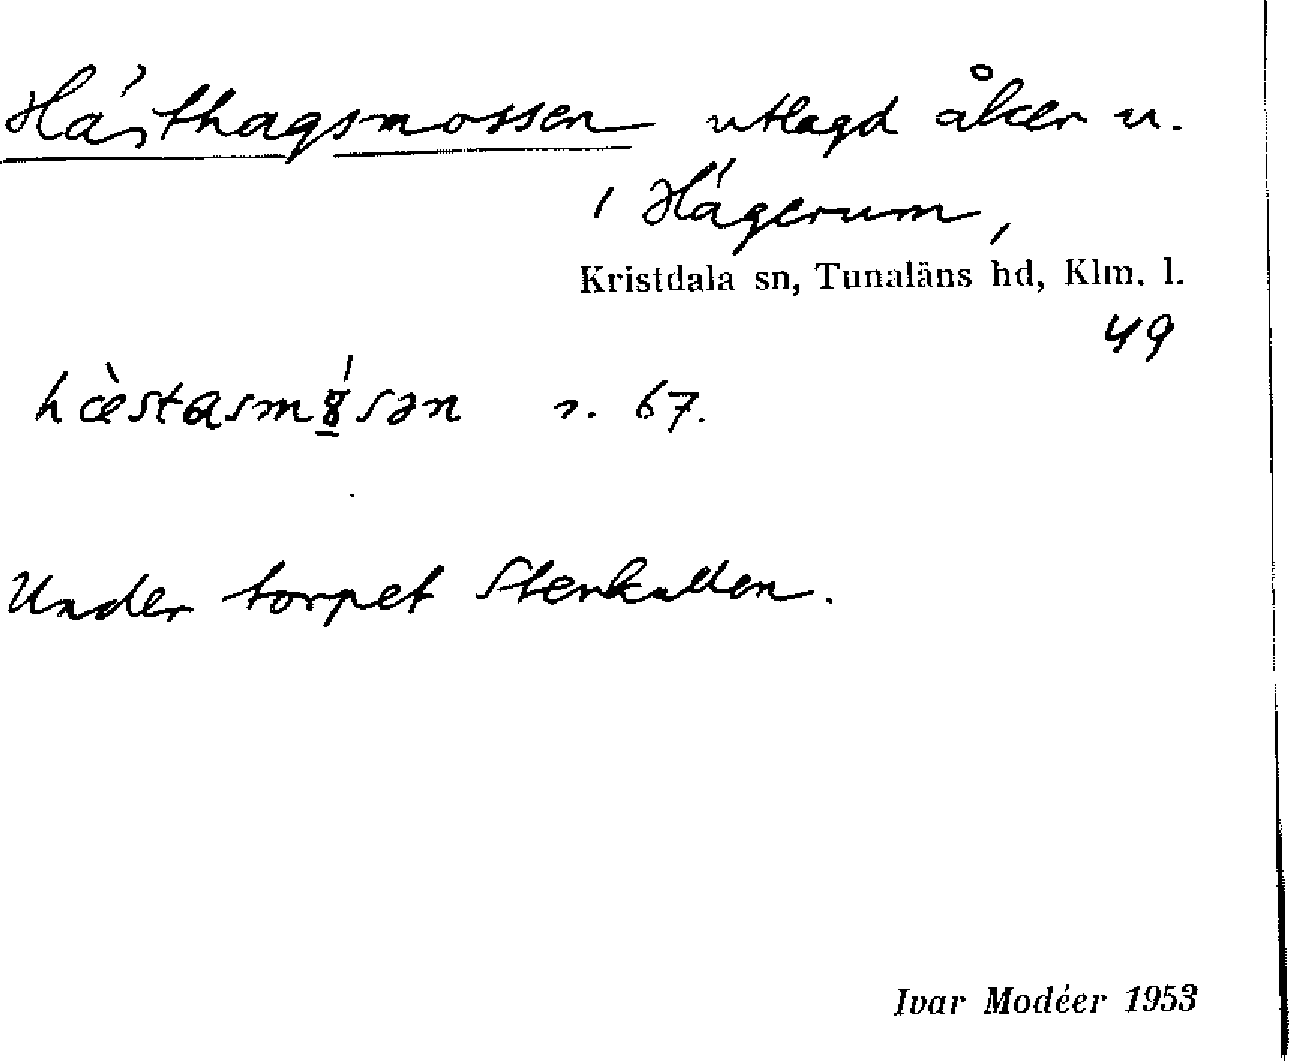 Hästhagsmossen utlagd åker u.
1 Hägerum,
Kristdala sn, Tunaläns hd, Klm. l.
49
hæ̀stasmo̱̍sən s. 67.
Under torpet Stenkullen.
Ivar Modéer 1953